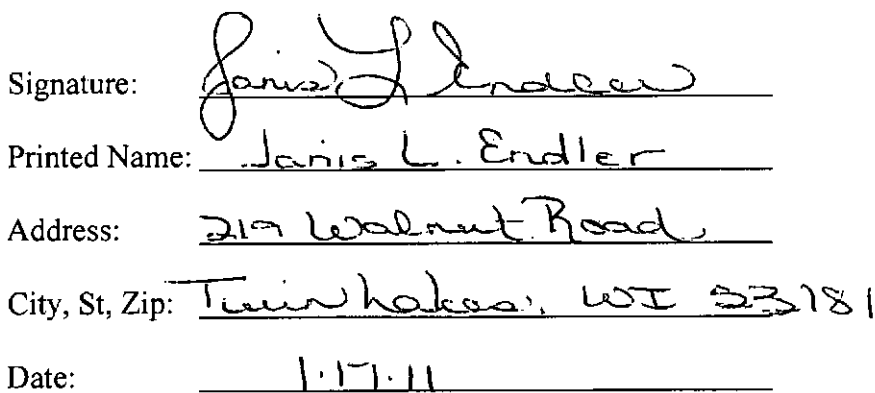 Signature: Janis L Endler
Printed Name: Janis L. Endler
Address: 219 Walnut Road
City, St, Zip: Twin Lakes, WI 53181
Date: 1.17.11